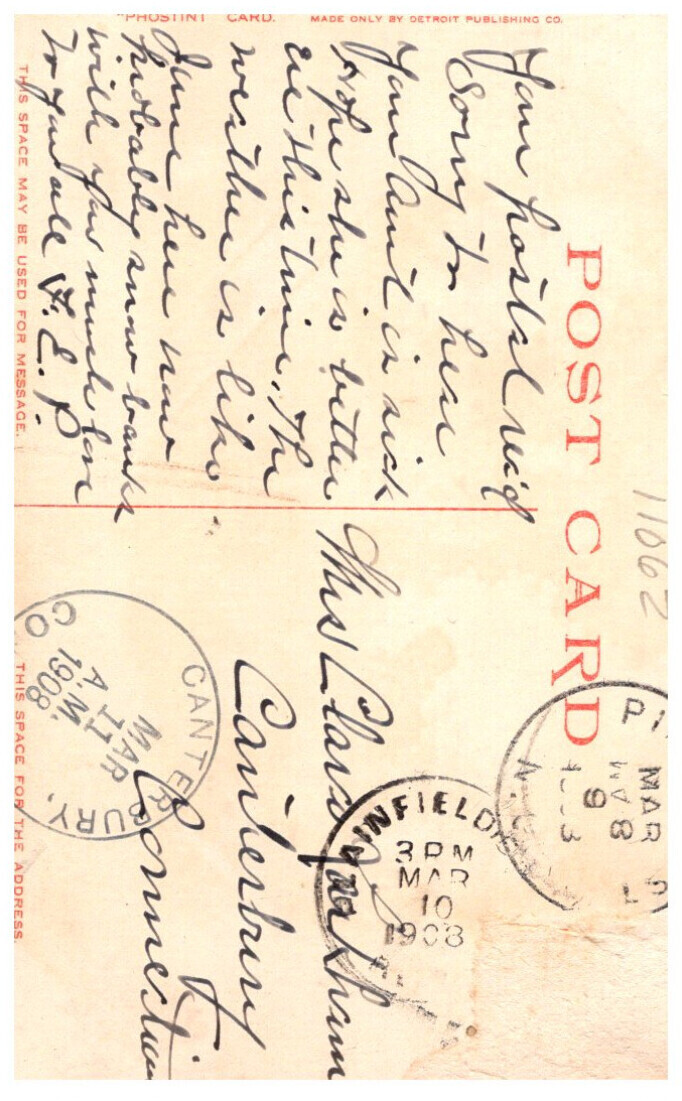 "PHOSTINT CARD. MADE ONLY BY DETROIT PUBLISHING CO.
POST CARD
11062
Your postal rec'd
Sorry to hear
Your Aunt is sick
Hope she is better
ere this time. The
weather is like
June here now
probably snow banks
with you much love
to you all F. E. P.
THIS SPACE MAY BE USED FOR MESSAGE.
MAR 9
8 AM
PLAINFIELD
3 PM
MAR
10
1908
Mrs Clara
Canterbury
Connecticut
CANTERBURY,
MAR
11
A.M.
1908
CO
THIS SPACE FOR THE ADDRESS.